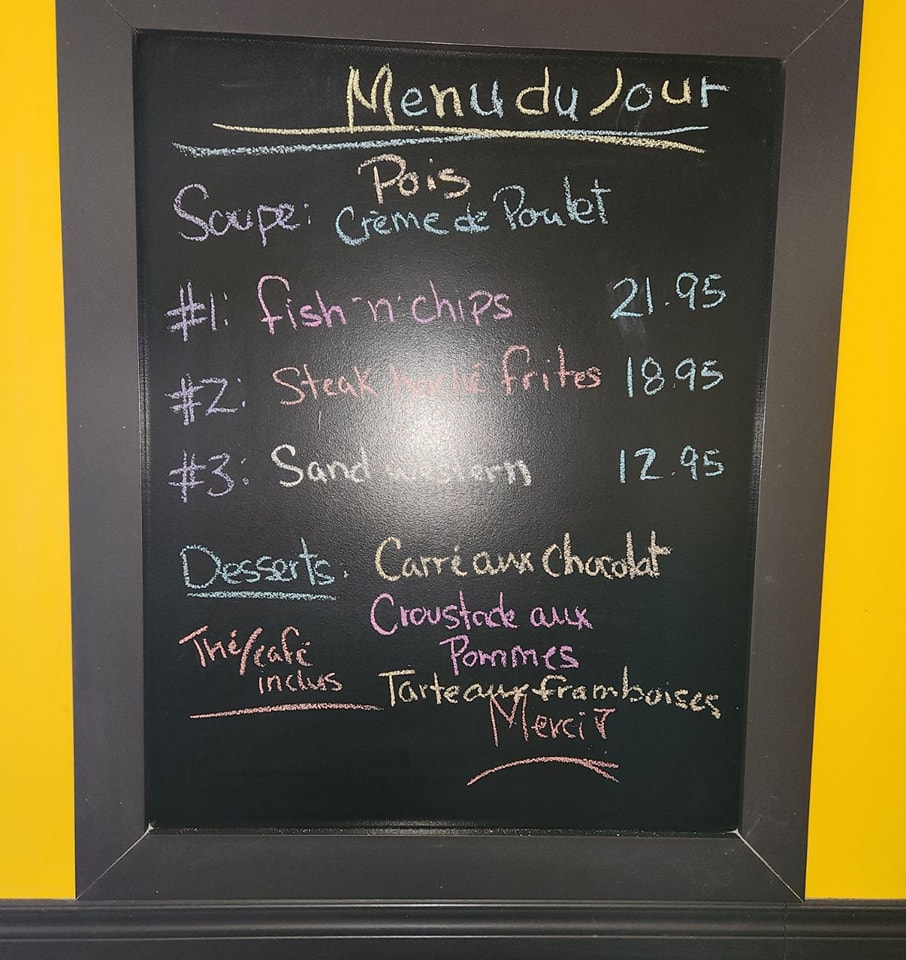 Menu du Jour
Pois
Soupe: Crème de Poulet
#1: fish 'n' chips 21.95
#2: Steak haché frites 18.95
#3: Sand western 12.95
Desserts: Carré aux chocolat
Croustade aux
Pommes
Thé/café
inclus
Tarte aux framboises
Merci!